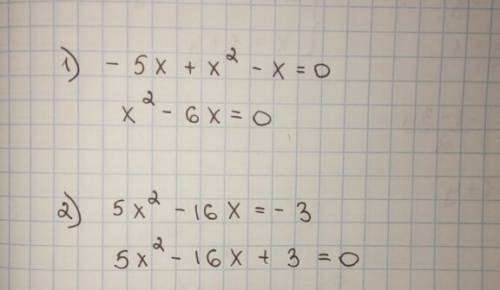 1) - 5x + x² - x = 0
x² - 6x = 0
2) 5x² - 16x = - 3
5x² - 16x + 3 = 0